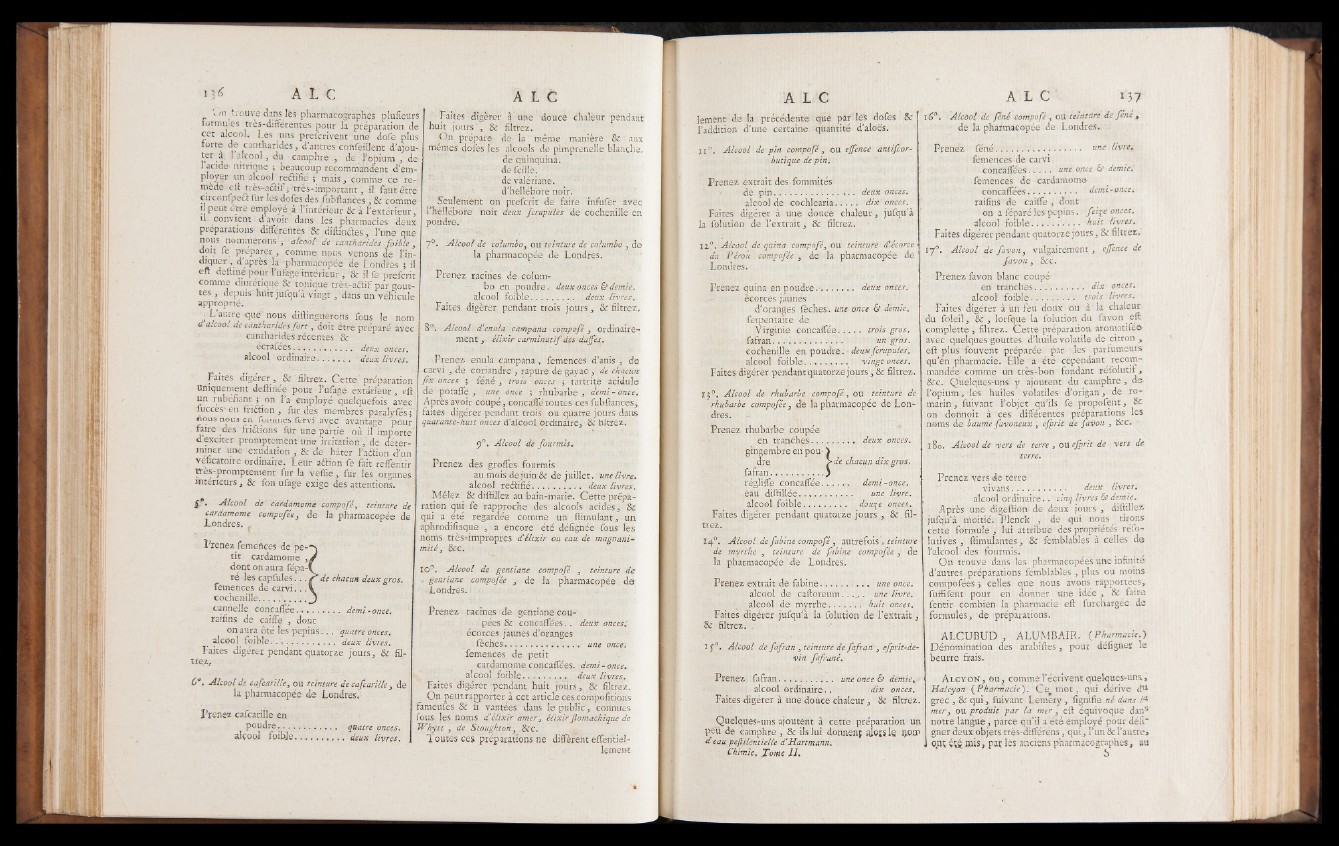 136 A L C
On trouve dans les pharmacographes plusieurs
formules très-différentes pour la préparation de
cet alcool. Les uns prescrivent une dose plus
forte de cantharides, d'autres conseillent d'ajou-
ter à l'alcool, du camphre, de l'opium, de
l'acide nitrique ; beaucoup recommandent d'em-
ployer un alcool rectifié ; mais, comme ce re-
mède est très-actif, très-important, il faut être
circonspect sur les doses des substances, & comme
il peut être employé à l'intérieur & à l'extérieur,
il convient d'avoir dans les pharmacies deux
préparations différentes & distinctes, l'une que
nous nommerons, alcool de cantharides foible,
doit se préparer, comme nous venons de l'in-
diquer, d'après la pharmacopée de Londres ; il
est destiné pour l'usage intérieur, & il se prescrit
comme diurétique & tonique très-actif par gout-
tes, depuis huit jusqu'à vingt, dans un véhicule
approprié.
L'autre que nous distinguerons sous le nom
d'alcool de cantharides fort, doit être préparé avec
cantharides récentes &
écrasées............ deux onces.
alcool ordinaire........ deux livres.
Faites digérer, & filtrez. Cette préparation
uniquement destinée pour l'usage extérieur, est
un rubéfiant ; on l'a employé quelquefois avec
succès en friction, sur des membres paralysés ;
nous nous en sommes servi avec avantage pour
faire des frictions sur une partie où il importe
d'exciter promptement une irritation, de déter-
miner une exudation, & de hâter l'action d'un
vésicatoire ordinaire. Leur action se fait ressentir
très-promptement sur la vessie, sur les organes
intérieurs, & son usage exige des attentions.
5°. Alcool de cardamome composé, teinture de
cardamome composée, de la pharmacopée de
Londres.
Prenez semences de pe-
tit cardamome,
dont on aura sépa-
ré les capsules... de chacun deux gros.
semences de carvi...
cochenille..........
cannelle concassée......... demi-once.
raisins de caisse, dont
on aura ôté les pepins... quatre onces.
alcool foible............. deux livres.
Faites digérer pendant quatorze jours, & fil-
trez.
6°. Alcool de cascarille, ou teinture de cascarille, de
la pharmacopée de Londres.
Prenez cascarille en
poudre............. quatre onces.
alcool foible.......... deux livres.
A L C
Faites digérer à une douce chaleur pendant
huit jours, & filtrez.
On prépare de la même manière & aux
mêmes doses les alcools de pimprenelle blanche.
de quinquina.
de scille.
de valériane.
d'hellébore noir.
Seulement on prescrit de faire infuser avec
l'hellébore noir deux scrupules de cochenille en
poudre.
7°. Alcool de columbo, ou teinture de columbo, de
la pharmacopée de Londres.
Prenez racines de colum-
bo en poudre. deux onces & demie.
alcool foible.......... deux livres.
Faites digérer pendant trois jours, & filtrez.
8°. Alcool d'enula campana composé, ordinaire-
ment, élixir carminatif des dusses.
Prenez enula campana, semences d'anis, de
carvi, de coriandre, rapure de gayac, de chacun
six onces ; séné, trois onces ; tartrite acidule
de potasse, une once ; rhubarbe, demi-once.
Après avoir coupé, concassé toutes ces substances,
faites digérer pendant trois ou quatre jours dans
quarante-huit onces d'alcool ordinaire, & filtrez.
9°. Alcool de fourmis.
Prenez des grosses fourmis
au mois de juin & de juillet. une livre.
alcool rectifié........... deux livres.
Mêlez & distillez au bain-marie. Cette prépa-
ration qui se rapproche des alcools acides, &
qui a été regardée comme un stimulant, un
aphrodisiaque, a encore été désignée sous les
noms très-impropres d'élixir ou eau de magnani-
mité, &c.
10°. Alcool de gentiane composé, teinture de
gentiane composée, de la pharmacopée de
Londres.
Prenez racines de gentiane cou-
pées & concassées.. deux onces.
écorces jaunes d'oranges
sèches.............. une once.
semences de petit
cardamome concassées. demi-once.
alcool foible......... deux livres.
Faites digérer pendant huit jours, & filtrez.
On peut rapporter à cet article ces compositions
fameuses & si vantées dans le public, connues
sous les noms d'élixir amer, élixir stomachique de
Whytt, de Stoughton, &c.
Toutes ces préparations ne diffèrent essentiel-
lement
A L C
lement de la précédente que par les doses &
l'addition d'une certaine quantité d'aloës.
11°. Alcool de pin composé, ou essence antiscor-
butique de pin.
Prenez extrait des sommités
de pin.............. deux onces.
alcool de cochlearia..... dix onces.
Faites digérer à une douce chaleur, jusqu'à
la solution de l'extrait, & filtrez.
12°. Alcool de quina composé, ou teinture d'écorce
du Pérou composée, de la pharmacopée de
Londres.
Prenez quina en poudre........ deux onces.
écorces jaunes
d'oranges sèches. une once & demie.
serpentaire de
Virginie concassée..... trois gros.
safran.............. un gros.
cochenille en poudre.. deux scrupules.
alcool foible......... vingt onces.
Faites digérer pendant quatorze jours, & filtrez.
13°. Alcool de rhubarbe composé, ou teinture de
rhubarbe composée, de la pharmacopée de Lon-
dres.
Prenez rhubarbe coupée
en tranches......... deux onces.
gingembre en pou-
dre de chacun dix gros.
safran...........
réglisse concassée...... demi-once.
eau distillée........... une livre.
alcool foible.......... douze onces.
Faites digérer pendant quatorze jours, & fil-
trez.
14°. Alcool de sabine composé, autrefois, teinture
de myrrhe, teinture de sabine composée, de
la pharmacopée de Londres.
Prenez extrait de sabine.......... une once.
alcool de castoreum...... une livre.
alcool de myrrhe........ huit onces.
Faites digérer jusqu'à la solution de l'extrait,
& filtrez.
15°. Alcool de safran, teinture de safran, esprit-de-
vin safrané.
Prenez safran.......... une once & demie.
alcool ordinaire.. dix onces.
Faites digérer à une douce chaleur, & filtrez.
Quelques-uns ajoutent à cette préparation un
peu de camphre, & ils lui donnent alors le nom
d'eau pestilentielle d'Hartmann.
Chimie. Tome II.
A L C 137
16°. Alcool de séné composé, ou teinture de séné,
de la pharmacopée de Londres.
Prenez séné................ une livre.
semences de carvi
concassées..... une once & demie.
semences de cardamome
concassées.......... demi-once.
raisins de caisse, dont
on a séparé les pepins. seize onces.
alcool foible......... huit livres.
Faites digérer pendant quatorze jours, & filtrez.
17°. Alcool de savon, vulgairement, essence de
savon, &c.
Prenez savon blanc coupé
en tranches........... dix onces.
alcool foible......... trois livres.
Faites digérer à un feu doux ou à la chaleur
du soleil, &, lorsque la solution du savon est
complette, filtrez. Cette préparation aromatisée
avec quelques gouttes d'huile volatile de citron,
est plus souvent préparée par les parfumeurs
qu'en pharmacie. Elle a été cependant recom-
mandée comme un très-bon fondant résolutif,
&c. Quelques-uns y ajoutent du camphre, de
l'opium, les huiles volatiles d'origan, de ro-
marin, suivant l'objet qu'ils se proposent, &
on donnoit à ces différentes préparations les
noms de baume savoneux, esprit de savon, &c.
18o. Alcool de vers de terre, ou esprit de vers de
terre.
Prenez vers de terre
vivans........... deux livres.
alcool ordinaire.. cinq livres & demie.
Après une digestion de deux jours, distillez
jusqu'à moitié. Plenck, de qui nous tirons
cette formule, lui attribue des propriétés réso-
lutives, stimulantes, & semblables à celles de
l'alcool des fourmis.
On trouve dans les pharmacopées une infinité
d'autres préparations semblables, plus ou moins
composées ; celles que nous avons rapportées,
suffisent pour en donner une idée, & faire
sentir combien la pharmacie est surchargée de
formules, de préparations.
ALCUBUD, ALUMBAIR. (Pharmacie.)
Dénomination des arabistes, pour désigner le
beurre frais.
ALCYON, ou, comme l'écrivent quelques-uns,
Halcyon (Pharmacie). Ce mot, qui dérive du
grec, & qui, suivant Lemery, signifie né dans la
mer, ou produit par la mer, est équivoque dans
notre langue, parce qu'il a été employé pour dési-
gner deux objets très-différens, qui, l'un & l'autre,
ont été mis, par les anciens pharmacographes, au
S